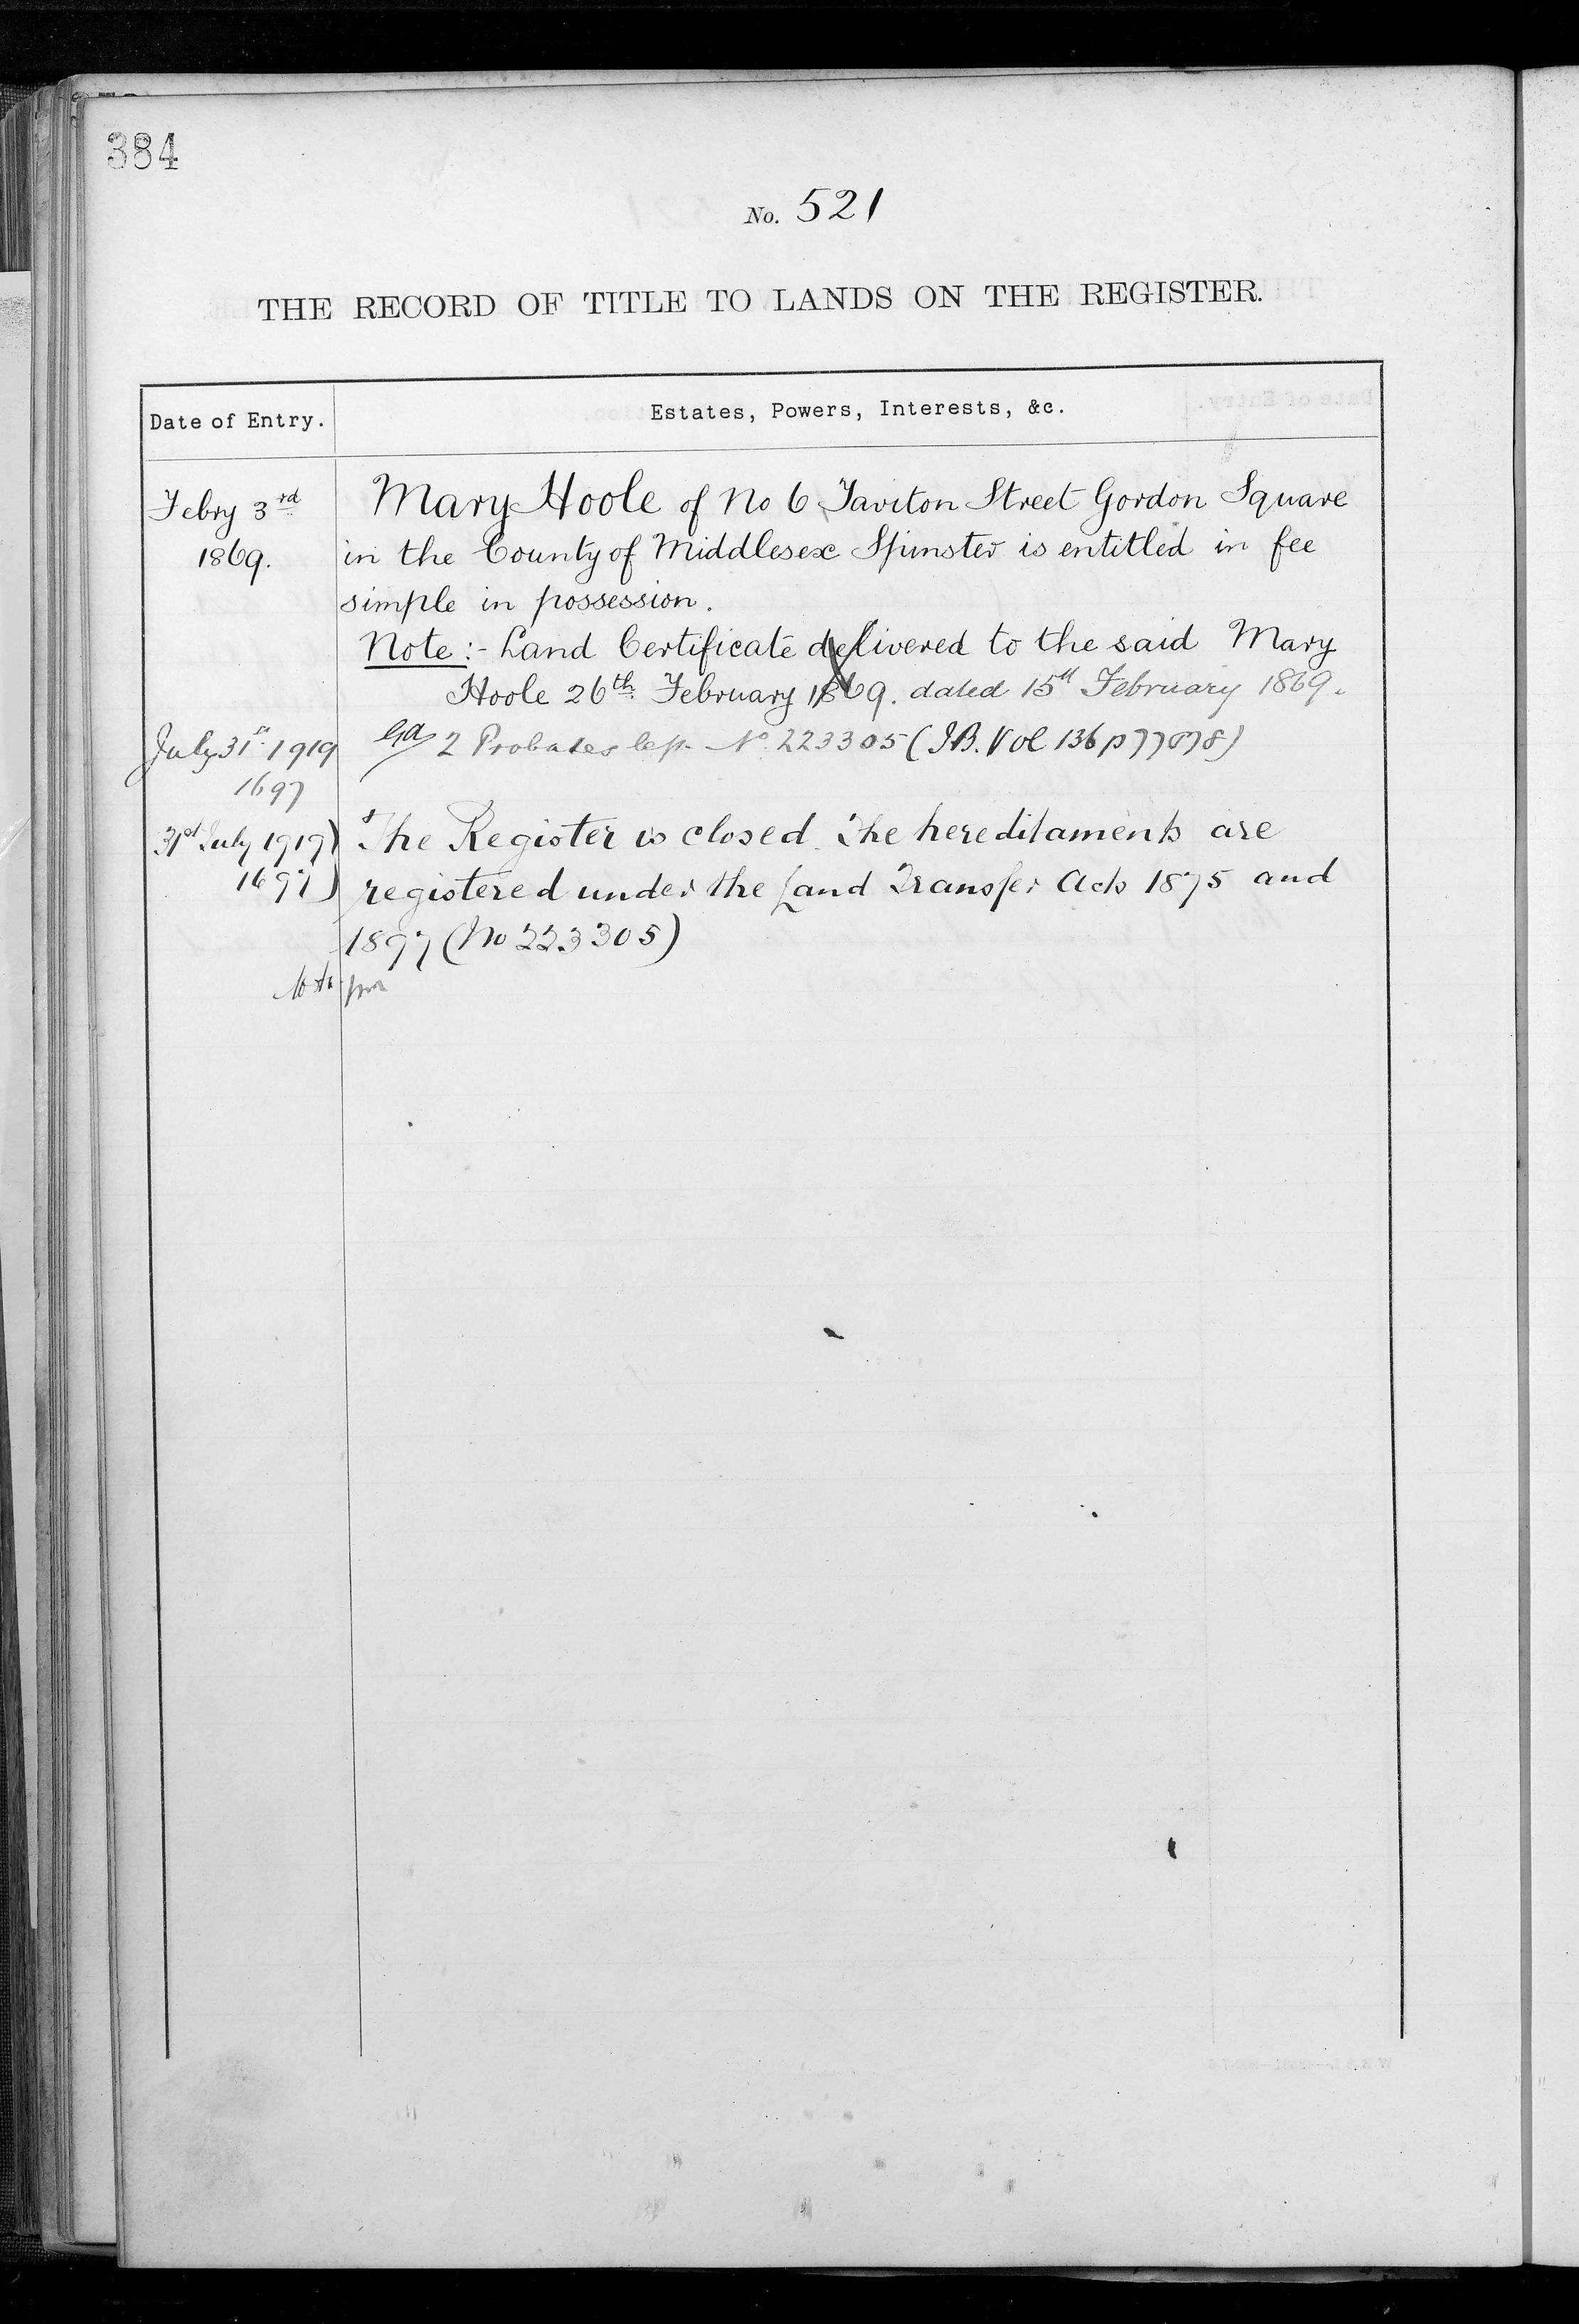 384
No. 521
THE RECORD OF TITLE TO LANDS ON THE REGISTER.
Date of Entry.
Estates, Powers, Interests, &c.
Febry 3rd Mary Hoole of No 6 Taviton Street Gordon Square
1869. in the County of Middlesex Spinster is entitled in fee
simple in possession.
Note:- Land Certificate delivered to the said Mary
Hoole 26th February 1869. dated 15th February 1869.
July 31st 1919 2 Probates No. 223305 (I.B. Vol 136 p
1697
31st July 1919) The Register is closed. The hereditaments are
1697) registered under the Land Transfer Acts 1875 and
1897 (No 223305)